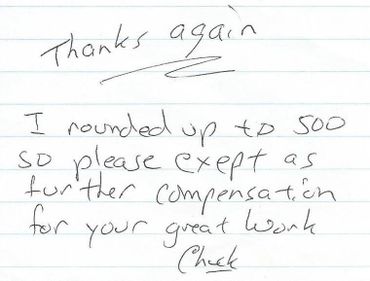 Thanks again
I rounded up to 500
so please exept as
further compensation
for your great work
Chuck